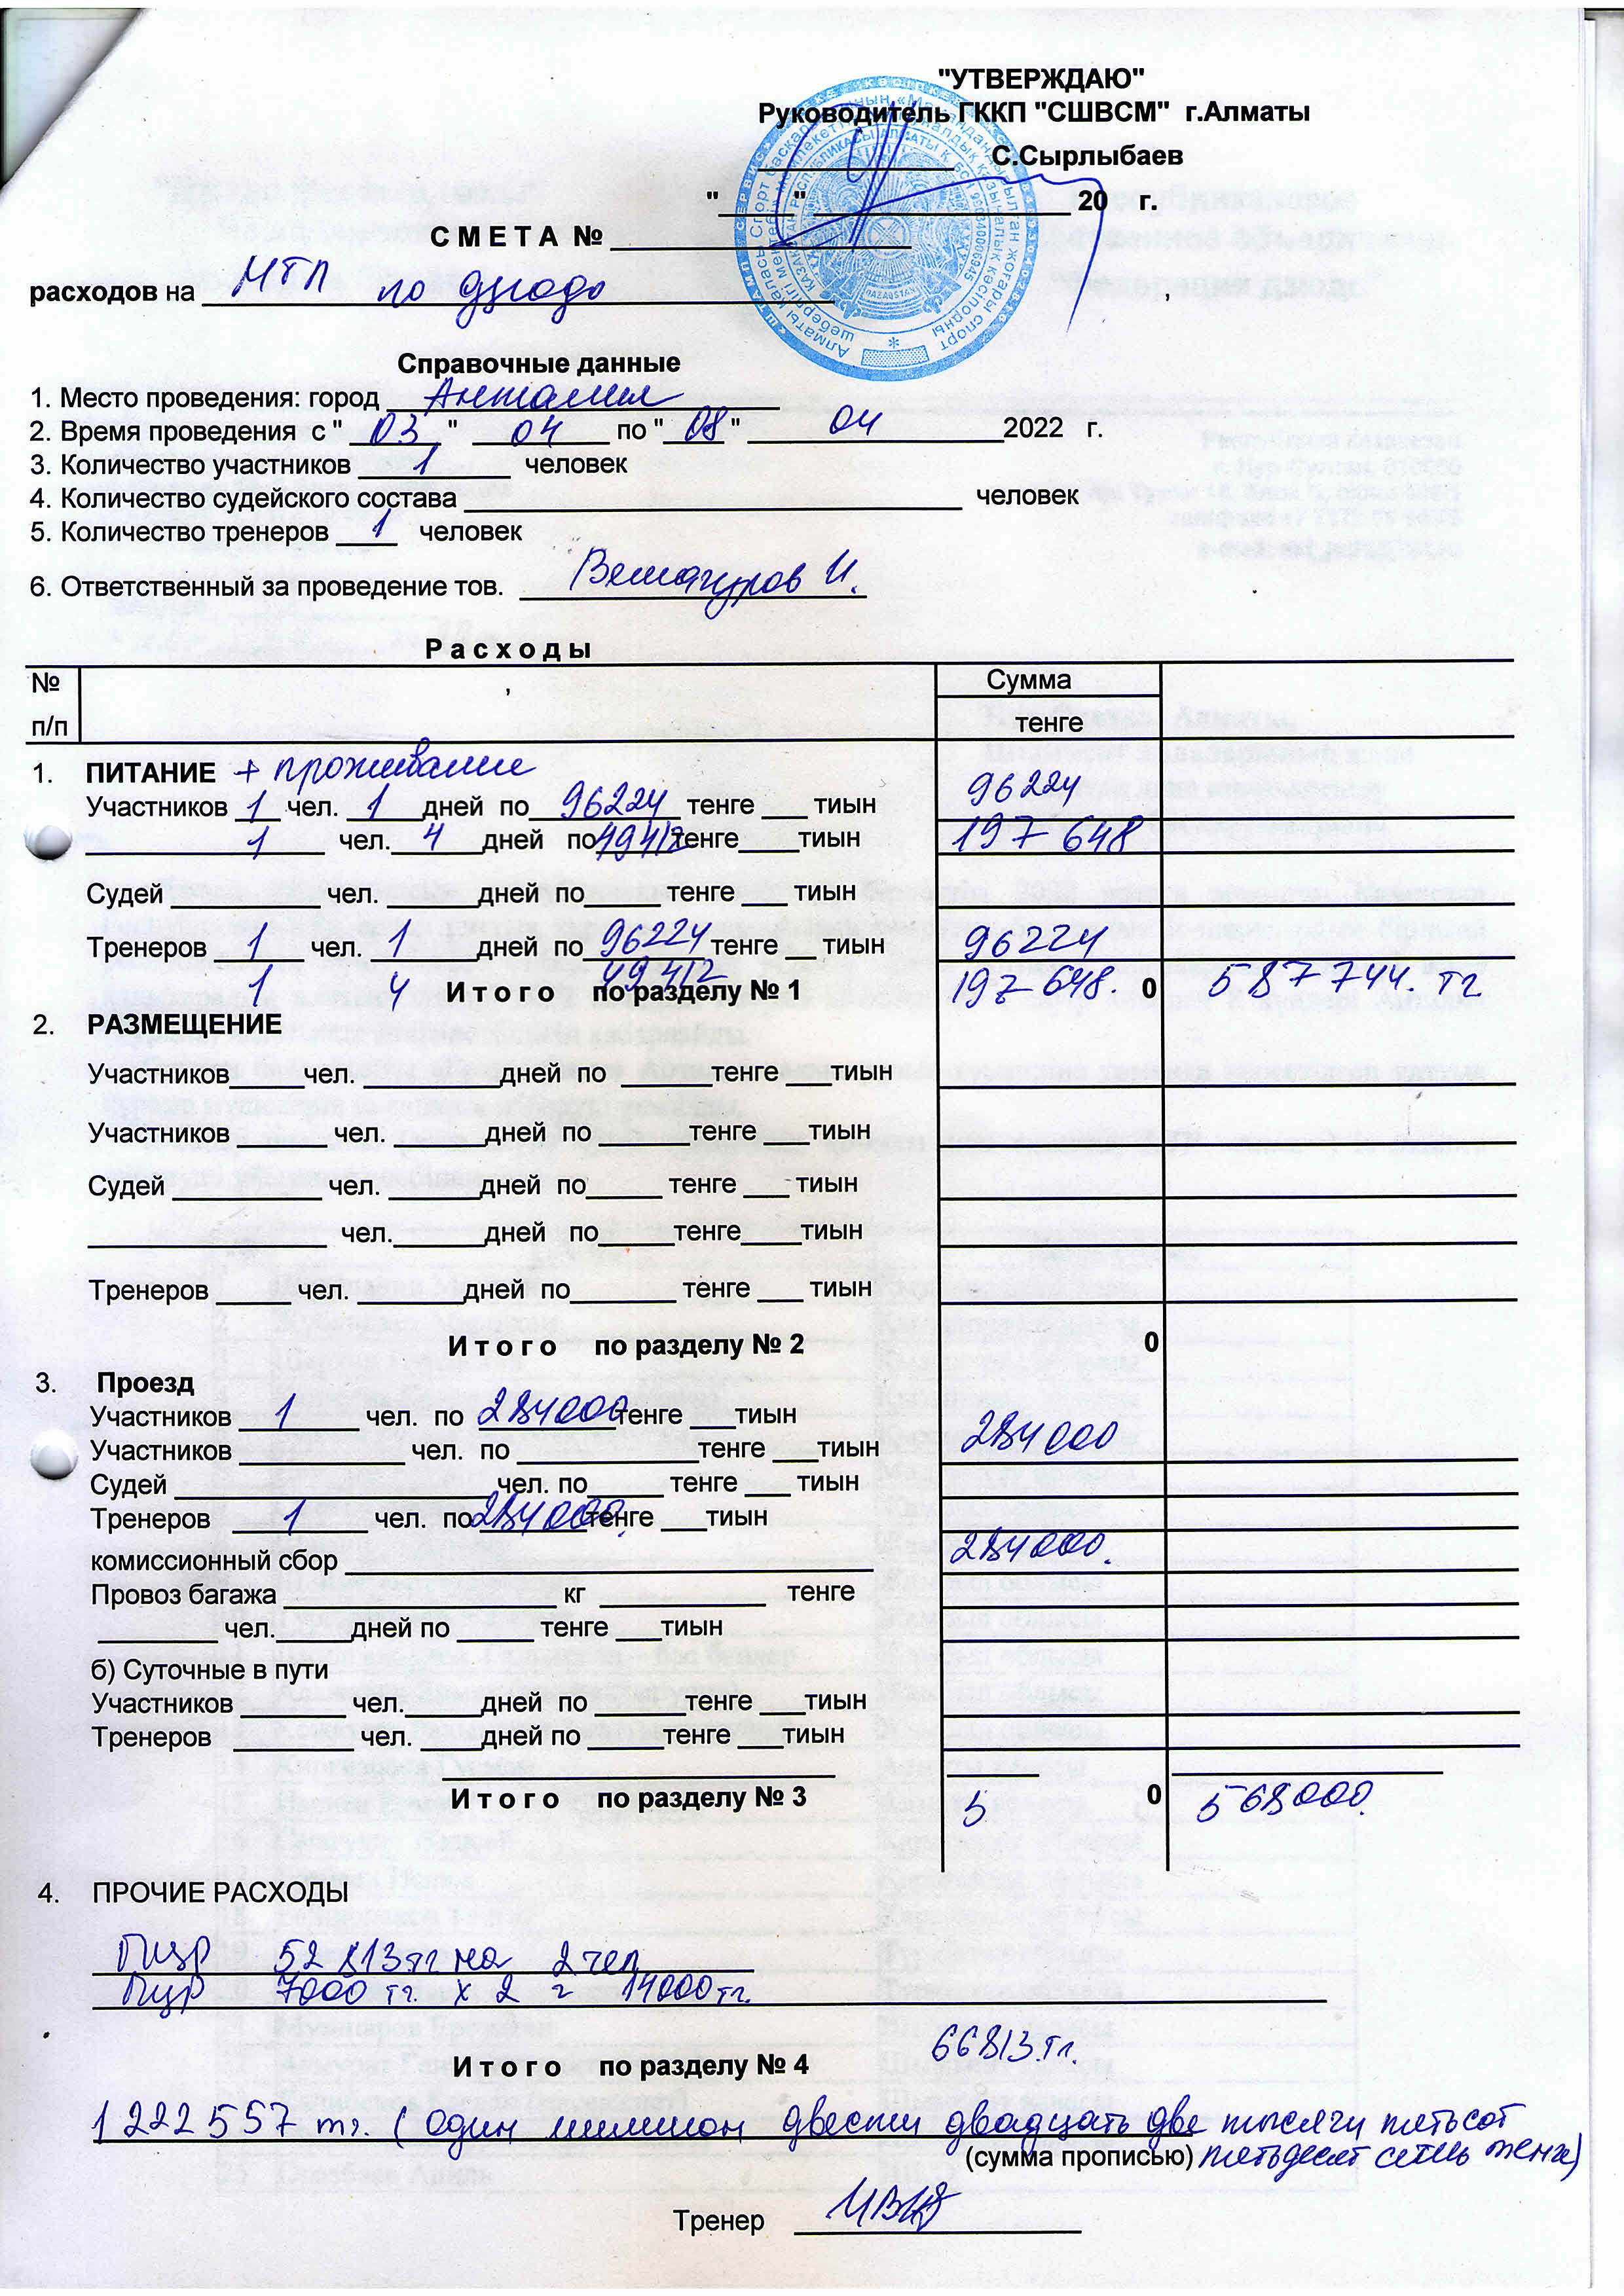 "УТВЕРЖДАЮ"
Руководитель ГККП "СШВСМ" г.Алматы
С.Сырлыбаев
"_____" _________________ 20 г.
С М Е Т А № ____________________
расходов на МТП по дзюдо ,
Справочные данные
1. Место проведения: город Анталия
2. Время проведения с " 03 " 04 по " 08 " 04 2022 г.
3. Количество участников 1 человек
4. Количество судейского состава _________________________________ человек
5. Количество тренеров 1 человек
6. Ответственный за проведение тов. И.
Р а с х о д ы
№ п/п , Сумма
тенге
1. ПИТАНИЕ + проживание
Участников 1 чел. 1 дней по 96224 тенге ___ тиын 96224
1 чел. 4 дней по 49412 тенге____тиын 197 648
Судей __________ чел. ______дней по_____ тенге ___ тиын
Тренеров 1 чел. 1 дней по 96224 тенге __ тиын 96224
1 4 49412 И т о г о по разделу № 1 197 648. 0 587 744. тг
2. РАЗМЕЩЕНИЕ
Участников_____чел. _________дней по ______тенге ___тиын
Участников ______ чел. ______дней по ______тенге ___тиын
Судей __________ чел. ______дней по_____ тенге ___ тиын
________________ чел.______дней по_____тенге____тиын
Тренеров _____ чел. _______дней по_______ тенге ___ тиын
И т о г о по разделу № 2 0
3. Проезд
Участников 1 чел. по 284000 тенге ___тиын 284000
Участников ___________ чел. по ____________тенге ___тиын
Судей _____________________чел. по_____ тенге ___ тиын
Тренеров 1 чел. по 284000. тенге ___тиын
комиссионный сбор ___________________________________ 284000.
Провоз багажа __________________ кг ___________ тенге
________ чел._____дней по _____ тенге ___тиын
б) Суточные в пути
Участников _______ чел._____дней по ______тенге ___тиын
Тренеров ________ чел. ____дней по _____тенге ___тиын
И т о г о по разделу № 3 5 0 568000.
4. ПРОЧИЕ РАСХОДЫ
Пцр 52 813 тг на 2 чел
Пцр 7000 тг. х 2 = 14000 тг.
И т о г о по разделу № 4 66813.тг.
1 222 557 тг. ( Один милион двести двадцать две тысячи пятьсот
(сумма прописью) пятьдесят семь тенге)
Тренер